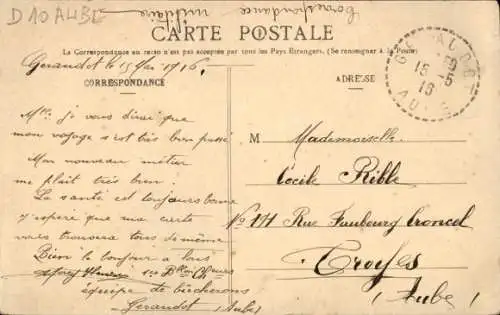 D10 AUBE
Correspondance
militaire
CARTE POSTALE
La Correspondance au recto n'est pas acceptée par tous les Pays Etrangers. (Se renseigner à la Poste)
Geraudot le 15 Mai 1916.
CORRESPONDANCE
ADRESSE
GERAUDOT
15-5
16
AUBE
Mlle je vous dirai que
mon voyage s'est très bien passé
Mon nouveau métier
me plait très bien
La santé est toujours bonne
j'espère que ma carte
vous trouvera tous de même
Bien le bonjour a tous
1er Bllon Cheurs
équipe de bûcherons
Geraudot (Aube)
M Mademoiselle
Cécile Rible
No 141 Rue Faubourg Croncel
Troyes
(Aube)